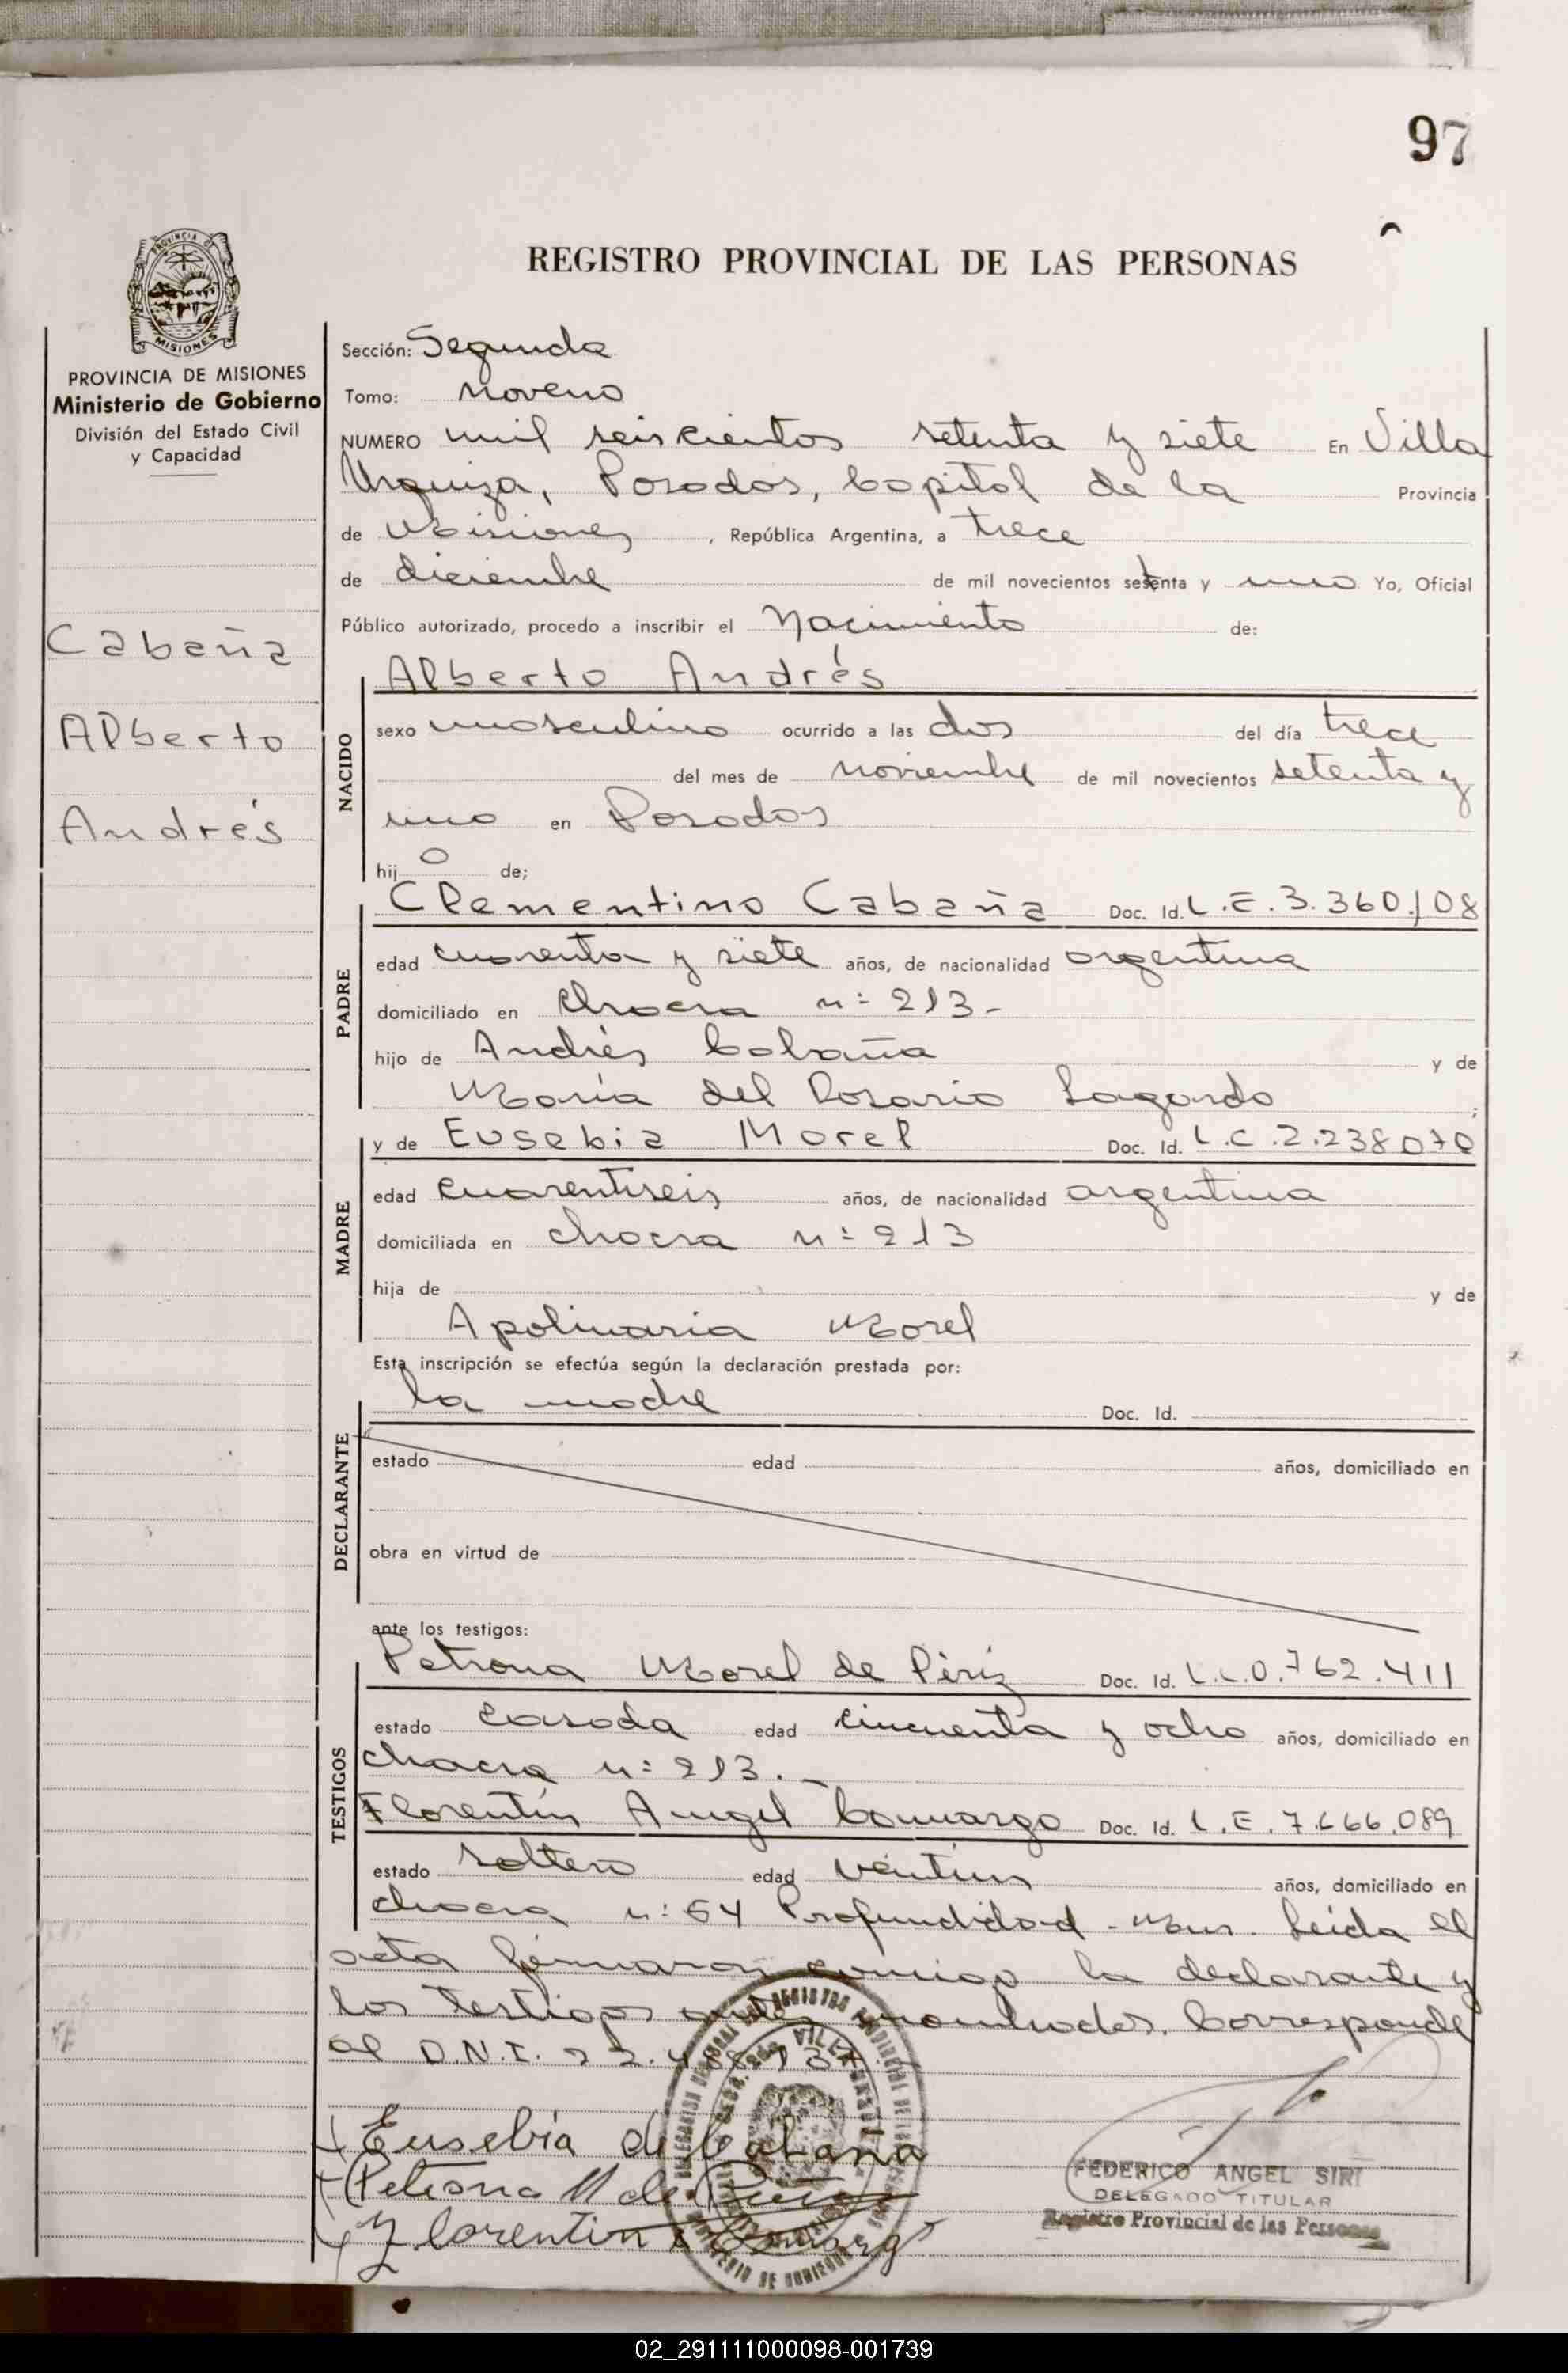 97
REGISTRO PROVINCIAL DE LAS PERSONAS
PROVINCIA DE
MISIONES
PROVINCIA DE MISIONES
Ministerio de Gobierno
División del Estado Civil
y Capacidad
Cabaña
Alberto
Andrés
Sección: Segunda
Tomo: noveno
NUMERO mil seiscientos setenta y siete En Villa
Urquiza, Posadas, Capital de la Provincia
de Misiones, República Argentina, a trece
de diciembre de mil novecientos setenta y uno Yo, Oficial
Público autorizado, procedo a inscribir el Nacimiento de:
NACIDO
Alberto Andrés
sexo masculino ocurrido a las dos del día trece
del mes de noviembre de mil novecientos setenta y
uno en Posadas
hijo de;
PADRE
Clementino Cabaña Doc. Id. L.E. 3.360.108
edad cuarenta y siete años, de nacionalidad argentina
domiciliado en chacra n: 213-
hijo de Andrés Cabaña y de
María del Rosario Lagardo;
MADRE
y de Eusebia Morel Doc. Id. L.C. 2.238070
edad cuarentiseis años, de nacionalidad argentina
domiciliada en chacra n: 213
hija de y de
Apolinaria Morel
Esta inscripción se efectúa según la declaración prestada por:
DECLARANTE
la madre Doc. Id.
estado edad años, domiciliado en
obra en virtud de
ante los testigos:
TESTIGOS
Petrona Morel de Píriz Doc. Id. L.C.0.762.411
estado casada edad cincuenta y ocho años, domiciliado en
chacra n: 213.-
Florentín Angel Camargo Doc. Id. L.E. 7.666.089
estado soltero edad veintiun años, domiciliado en
chacra n: 64 Profundidad - Mnes. Leída el
acta firmaron conmigo la declarante y
los testigos antes nombrados. Corresponde
al D.N.I. 22.
Eusebia de Cabaña
Petrona M de
Florentin Camargo
FEDERICO ANGEL SIRI
DELEGADO TITULAR
Registro Provincial de las Personas
02_291111000098-001739